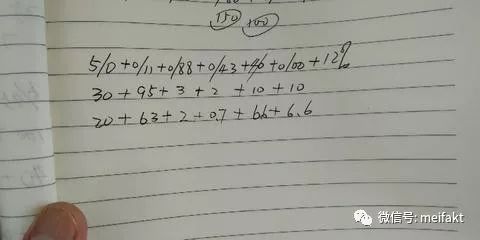 150 100
5/0+0/11+0/88+0/43+46+0/00+12%
30+95+3+2+10+10
20+63+2+0.7+66+6.6
微信号: meifakt